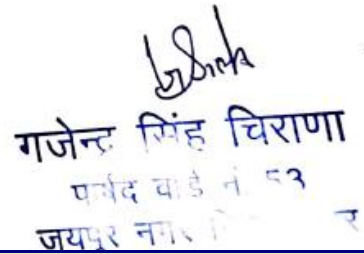 गजेन्द्र सिंह चिराणा
पार्षद वार्ड नं. 53
जयपुर नगर